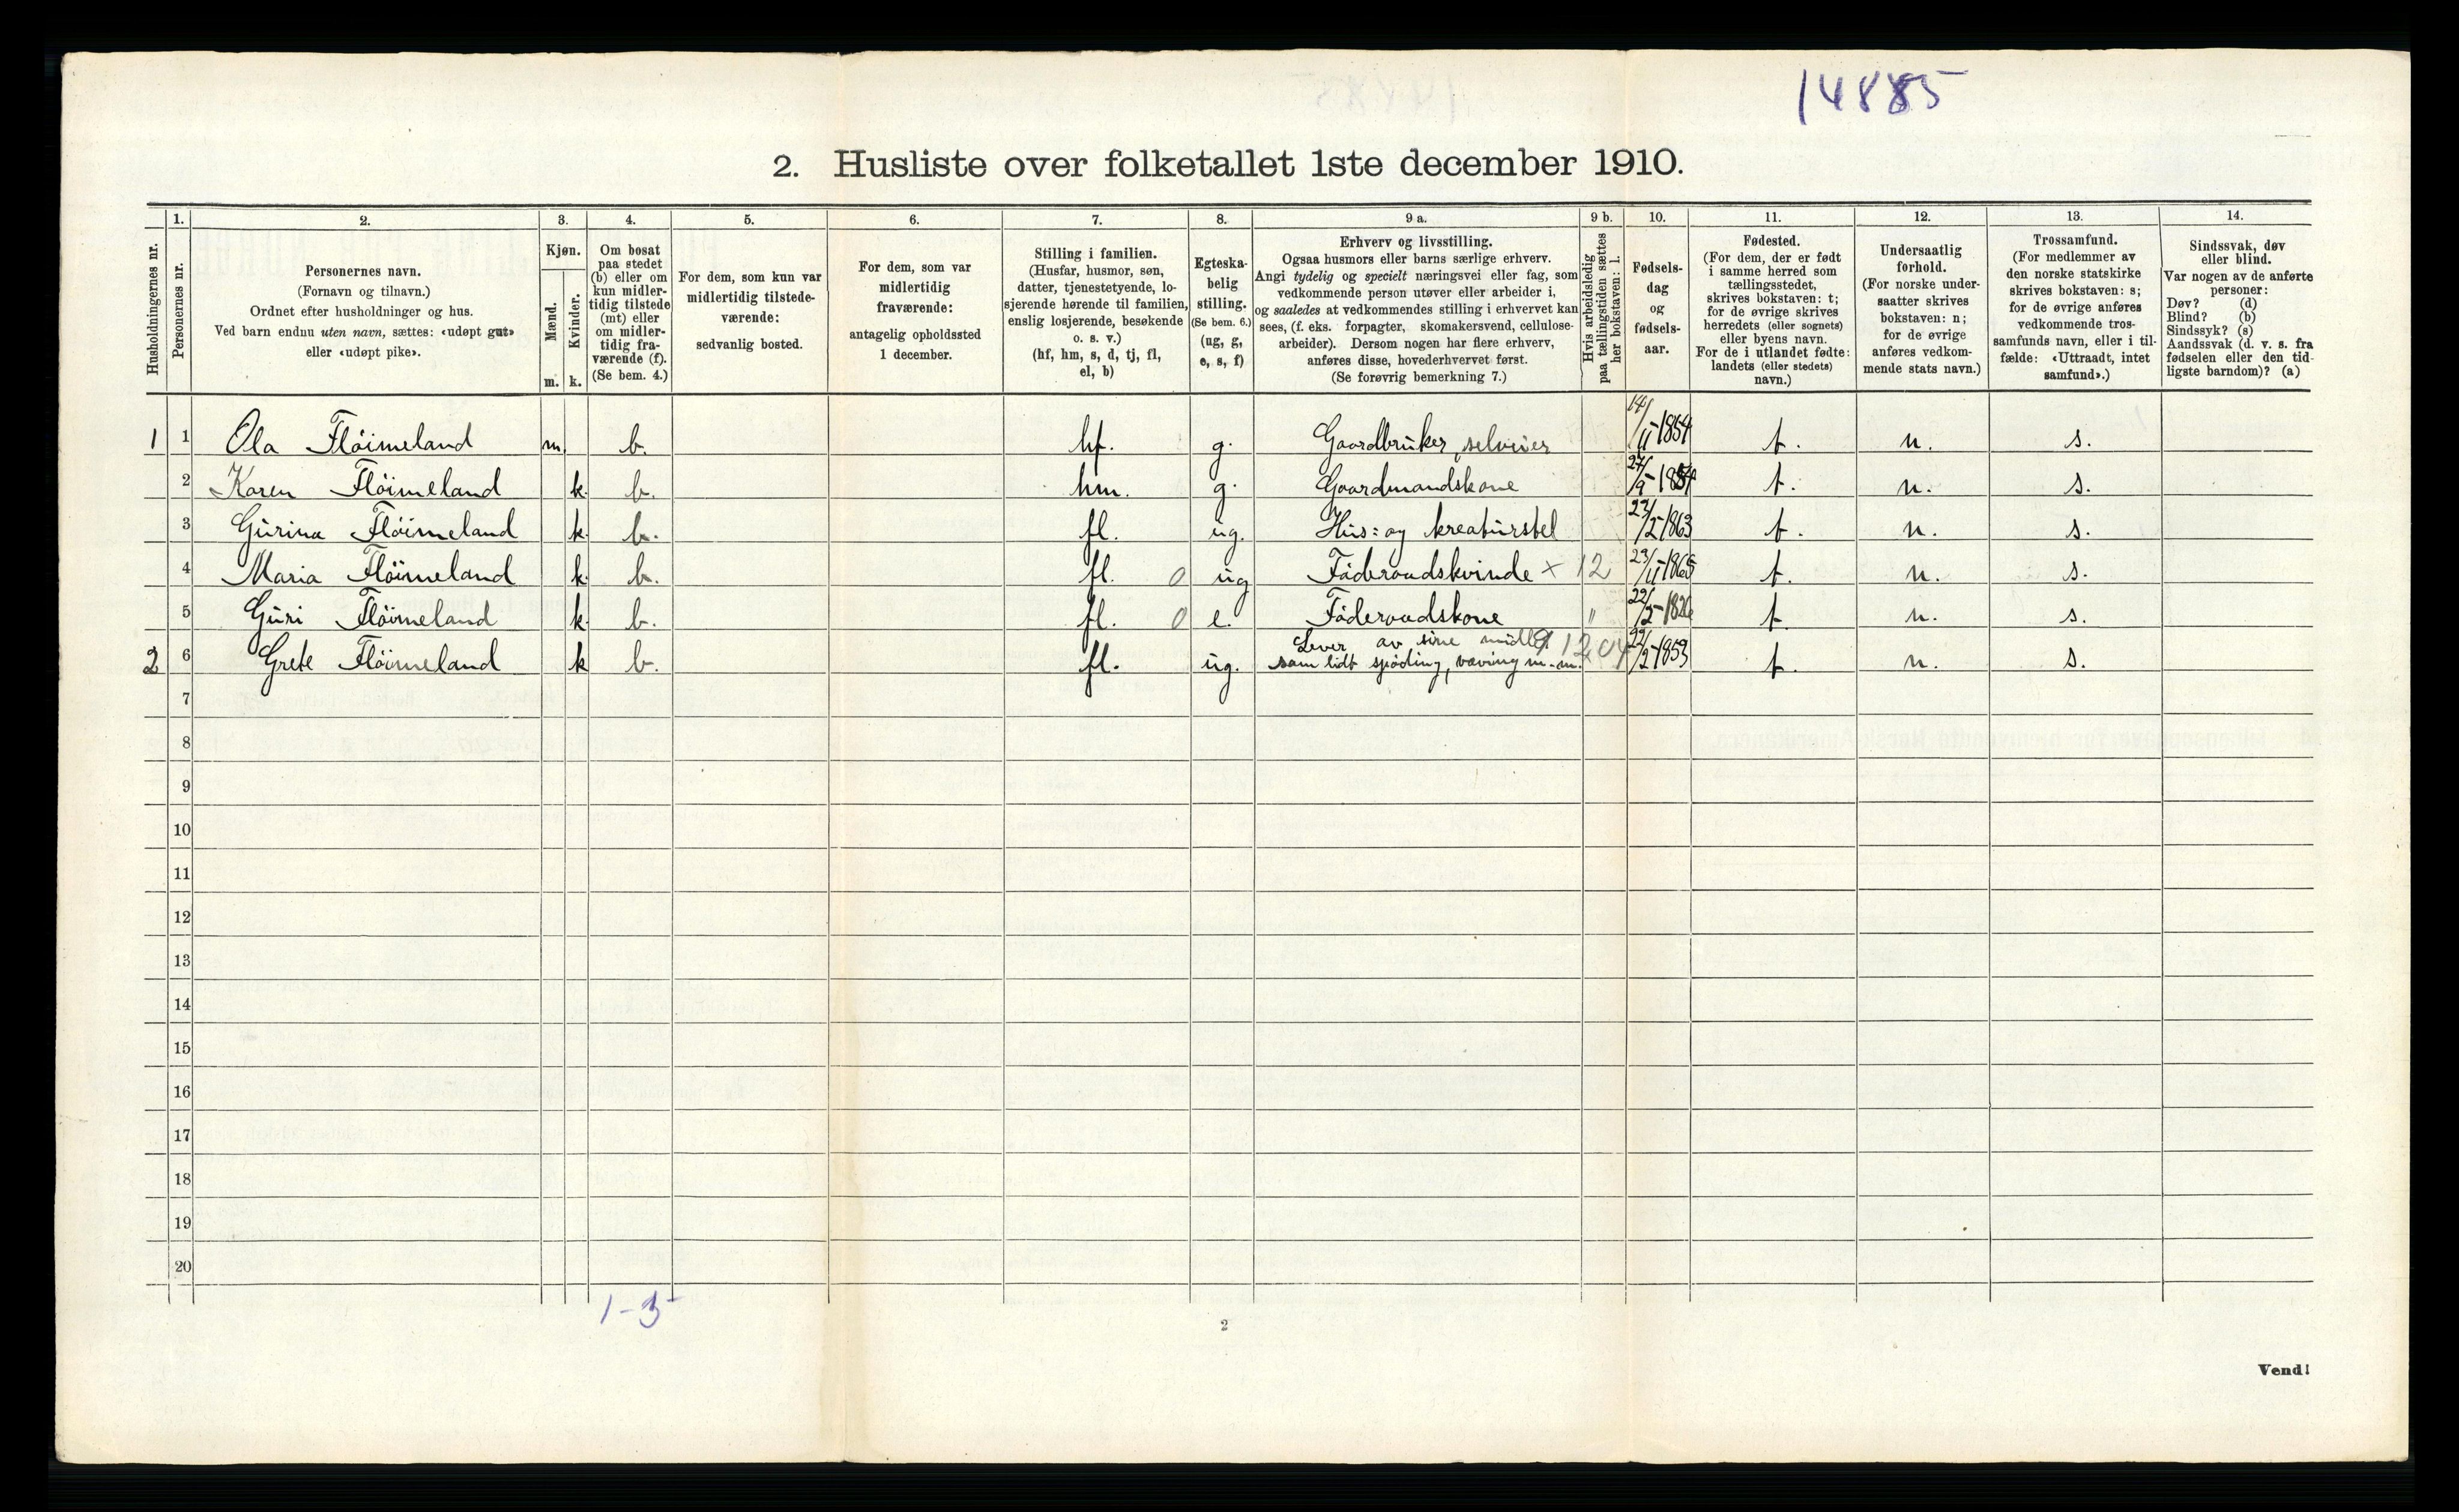 14885
2. Husliste over folketallet 1ste december 1910.
Husholdningernes nr.
1.
Personernes nr.
2.
Personernes navn.
(Fornavn og tilnavn.)
Ordnet efter husholdninger og hus.
Ved barn endnu uten navn, sættes: «udøpt gut»
eller «udøpt pike».
3.
Kjøn.
Mænd.
Kvinder.
m. k.
4.
Om bosat
paa stedet
(b) eller om
kun midler-
tidig tilstede
(mt) eller
om midler-
tidig fra-
værende (f).
(Se bem. 4.)
5.
For dem, som kun var
midlertidig tilstede-
værende:
sedvanlig bosted.
6.
For dem, som var
midlertidig
fraværende:
antagelig opholdssted
1 december.
7.
Stilling i familien.
(Husfar, husmor, søn,
datter, tjenestetyende, lo-
sjerende hørende til familien,
enslig losjerende, besøkende
o. s. v.)
(hf, hm, s, d, tj, fl,
el, b)
8.
Egteska-
belig
stilling.
(Se bem. 6.)
(ug, g,
e, s, f)
9 a.
Erhverv og livsstilling.
Ogsaa husmors eller barns særlige erhverv.
Angi tydelig og specielt næringsvei eller fag, som
vedkommende person utøver eller arbeider i,
og saaledes at vedkommendes stilling i erhvervet kan
sees, (f. eks. forpagter, skomakersvend, cellulose-
arbeider). Dersom nogen har flere erhverv,
anføres disse, hovederhvervet først.
(Se forøvrig bemerkning 7.)
9 b.
Hvis arbeidsledig
paa tællingstiden sættes
her bokstaven: l.
10.
Fødsels-
dag
og
fødsels-
aar.
11.
Fødested.
(For dem, der er født
i samme herred som
tællingsstedet,
skrives bokstaven: t;
for de øvrige skrives
herredets (eller sognets)
eller byens navn.
For de i utlandet fødte:
landets (eller stedets)
navn.)
12.
Undersaatlig
forhold.
(For norske under-
saatter skrives
bokstaven: n;
for de øvrige
anføres vedkom-
mende stats navn.)
13.
Trossamfund.
(For medlemmer av
den norske statskirke
skrives bokstaven: s;
for de øvrige anføres
vedkommende tros-
samfunds navn, eller i til-
fælde: «Uttraadt, intet
samfund».)
14.
Sindssvak, døv
eller blind.
Var nogen av de anførte
personer:
Døv? (d)
Blind? (b)
Sindssyk? (s)
Aandssvak (d. v. s. fra
fødselen eller den tid-
ligste barndom)? (a)
1 1 Ola Fløimeland m. b. hf. g. Gaardbruker, selveier 14/11-1854 t. n. s.
2 Karen Fløimeland k. b. hm. g. Gaardmandskone 27/9-1854 t. n. s.
3 Gurina Fløimeland k. b. fl. ug. Hus= og kreaturstel 23/2-1863 t. n. s.
4 Maria Fløimeland k. b. fl. 0 ug Føderaadskvinde × 12 23/11-1865 t. n. s.
5 Guri Fløimeland k. b. fl. 0 e. Føderaadskone " 22/5-1826 t. n. s.
2 6 Grete Fløimeland k b. fl. ug. Lever av sine midler
samt lidt spøding, væving m.m. 22/2-1853 t. n. s.
7
8
9
10
11
12
13
14
15
16
17
18
19
20
1-5
2
Vend!